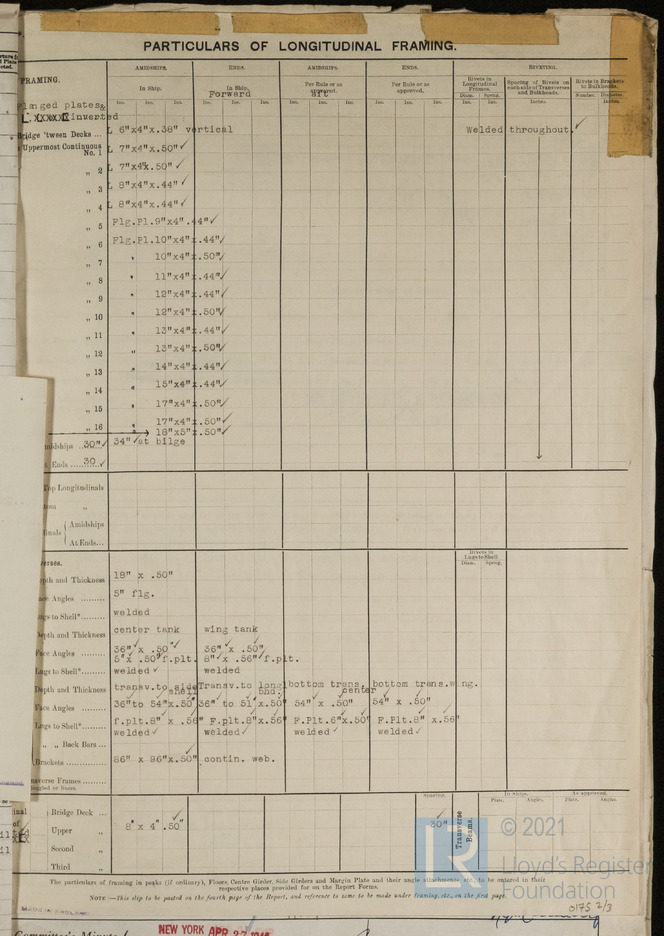 PARTICULARS OF LONGITUDINAL FRAMING.
AMIDSHIPS. ENDS. AMIDSHIPS. ENDS. RIVETING.
FRAMING.
In Ship. In Ship. Per Rule or as approved. Per Rule or as approved.
Forward aft
Rivets in Longitudinal Frames. Spacing of Rivets on each side of Transverses and Bulkheads. Rivets in Brackets to Bulkheads.
Ins. Ins. Ins. Ins. Ins. Ins. Ins. Ins. Ins. Ins. Ins. Ins. Diam. Spcng. Inches. Number. Diameter. Inches.
Flanged plates&
inverted
Bridge 'tween Decks ... L 6"x4"x.38" vertical Welded throughout.✓
Uppermost Continuous
No. 1 L 7"x4"x.50"✓
„ 2 L 7"x4"x.50"✓
„ 3 L 8"x4"x.44"✓
„ 4 L 8"x4"x.44"✓
„ 5 Flg.Pl.9"x4".44"✓
„ 6 Flg.Pl.10"x4"x.44"✓
„ 7 " 10"x4"x.50"✓
„ 8 " 11"x4"x.44"✓
„ 9 " 12"x4"x.44"✓
„ 10 " 12"x4"x.50"✓
„ 11 " 13"x4"x.44"✓
„ 12 " 13"x4"x.50"✓
„ 13 " 14"x4"x.44"✓
„ 14 " 15"x4"x.44"✓
„ 15 " 17"x4"x.50"✓
„ 16 " 17"x4"x.50"✓
" 18"x5"x.50"✓
midships ..30"✓ 34"✓at bilge
Ends ......30 ✓
Top Longitudinals
„
Amidships
At Ends...
Rivets in Lugs to Shell
Diam. Spcng.
Depth and Thickness 18" x .50"
Face Angles ......... 5" flg.
Lugs to Shell*....... welded
Depth and Thickness center tank wing tank
36" x .50" 36" x .50"
Face Angles ......... 5"x .50"f.plt. 8" x .56"f.plt.
Lugs to Shell*........ welded✓ welded
Depth and Thickness transv.to side shell Transv.to longl bhd. bottom trans. center bottom trans.wing.
Face Angles ......... 36"to 54"x.50" 36" to 51"x.50" 54" x .50" 54" x .50"
Lugs to Shell*........ f.plt.8" x .56" F.plt.8"x.56" F.Plt.6"x.50" F.Plt.8" x.56"
welded✓ welded✓ welded✓ welded✓
„ „ Back Bars ...
Brackets .............. 86" x 96"x.50" contin. web.
Transverse Frames ........
Spacing. In Ships. As approved.
Plate. Angles. Plate. Angles.
Bridge Deck ...
Upper „ 8" x 4" .50" 30" Transverse Beams.
Second „
Third „
The particulars of framing in peaks (if ordinary), Floors, Centre Girder, Side Girders and Margin Plate and their angle attachments, etc., to be entered in their
respective places provided for on the Report Forms.
NOTE:—This slip to be pasted on the fourth page of the Report, and reference to same to be made under framing, etc., on the first page.
© 2021
Lloyd's Register
Foundation
0175 2/3
Committee's Minute
NEW YORK APR 27